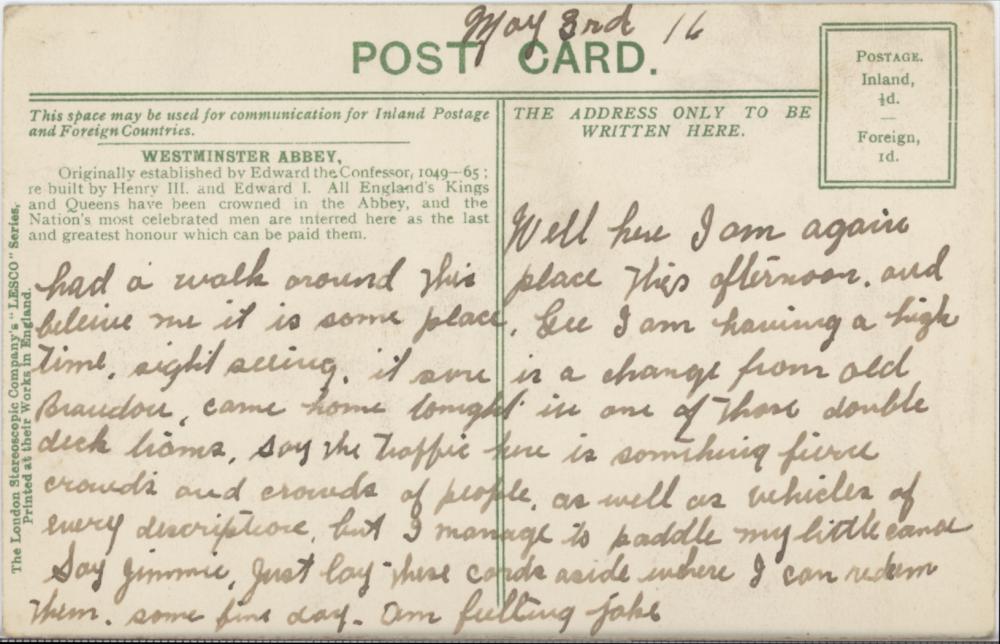 May 3rd 16
POST CARD.
POSTAGE.
Inland,
½d.
—
Foreign,
1d.
This space may be used for communication for Inland Postage
and Foreign Countries.
THE ADDRESS ONLY TO BE
WRITTEN HERE.
WESTMINSTER ABBEY,
Originally established by Edward the Confessor, 1049—65;
re built by Henry III. and Edward I. All England's Kings
and Queens have been crowned in the Abbey, and the
Nation's most celebrated men are interred here as the last
and greatest honour which can be paid them.
The London Stereoscopic Company's "LESCO" Series.
Printed at their Works in England.
Well here I am again
had a walk around this place this afternoon. and
beleive me it is some place. Gee I am having a high
time, sight seeing. it sure is a change from old
Brandon, came home tonight in one of those double
deck trams. Say the traffic here is something fierce
crowds and crowds of people, as well as vehicles of
every description, but I manage to paddle my little canoe
Say Jimmie, Just lay these cards aside where I can redeem
them. some fine day. Am feeling jake